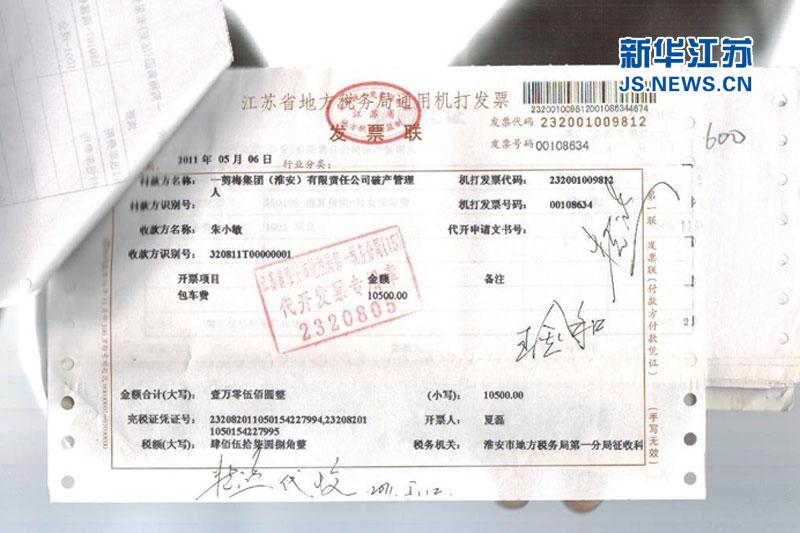 新华江苏
JS.NEWS.CN
江苏省地方税务局通用机打发票
发票联
232001009812001086344674
发票代码 232001009812
发票号码 00108634
600
2011 年 05 月 06 日
行业分类：
付款方名称： 一剪梅集团（淮安）有限责任公司破产管理人
机打发票代码： 232001009812
付款方识别号：
机打发票号码： 00108634
收款方名称： 朱小敏
代开申请文书号：
收款方识别号： 320811T00000001
开票项目 金额 备注
包车费 10500.00
代开发票专用章
2320805
金额合计(大写)： 壹万零伍佰圆整
(小写)： 10500.00
完税证凭证号： 232082011050154227994,23208201
1050154227995
开票人： 夏磊
税额(大写)： 肆佰伍拾柒圆捌角整
税务机关： 淮安市地方税务局第一分局征收科
第一联 发票联(付款方付款凭证)
(手写无效)
代收 2011.5.12.